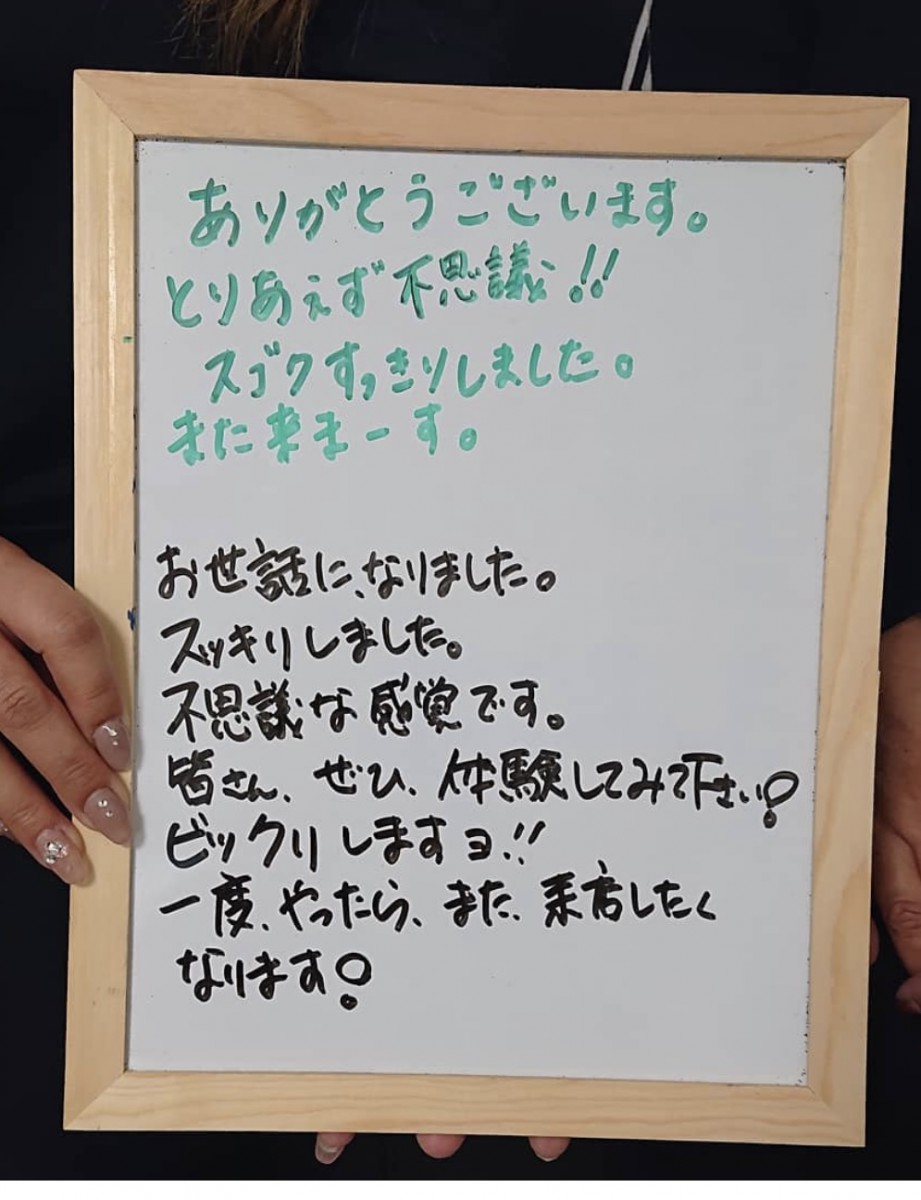 ありがとうございます。
とりあえず不思議!!
スゴクすっきりしました。
また来まーす。
お世話に、なりました。
スッキリしました。
不思議な感覚です。
皆さん、ぜひ、体験してみて下さい!
ビックリしますヨ!!
一度、やったら、また、来店したく
なります!